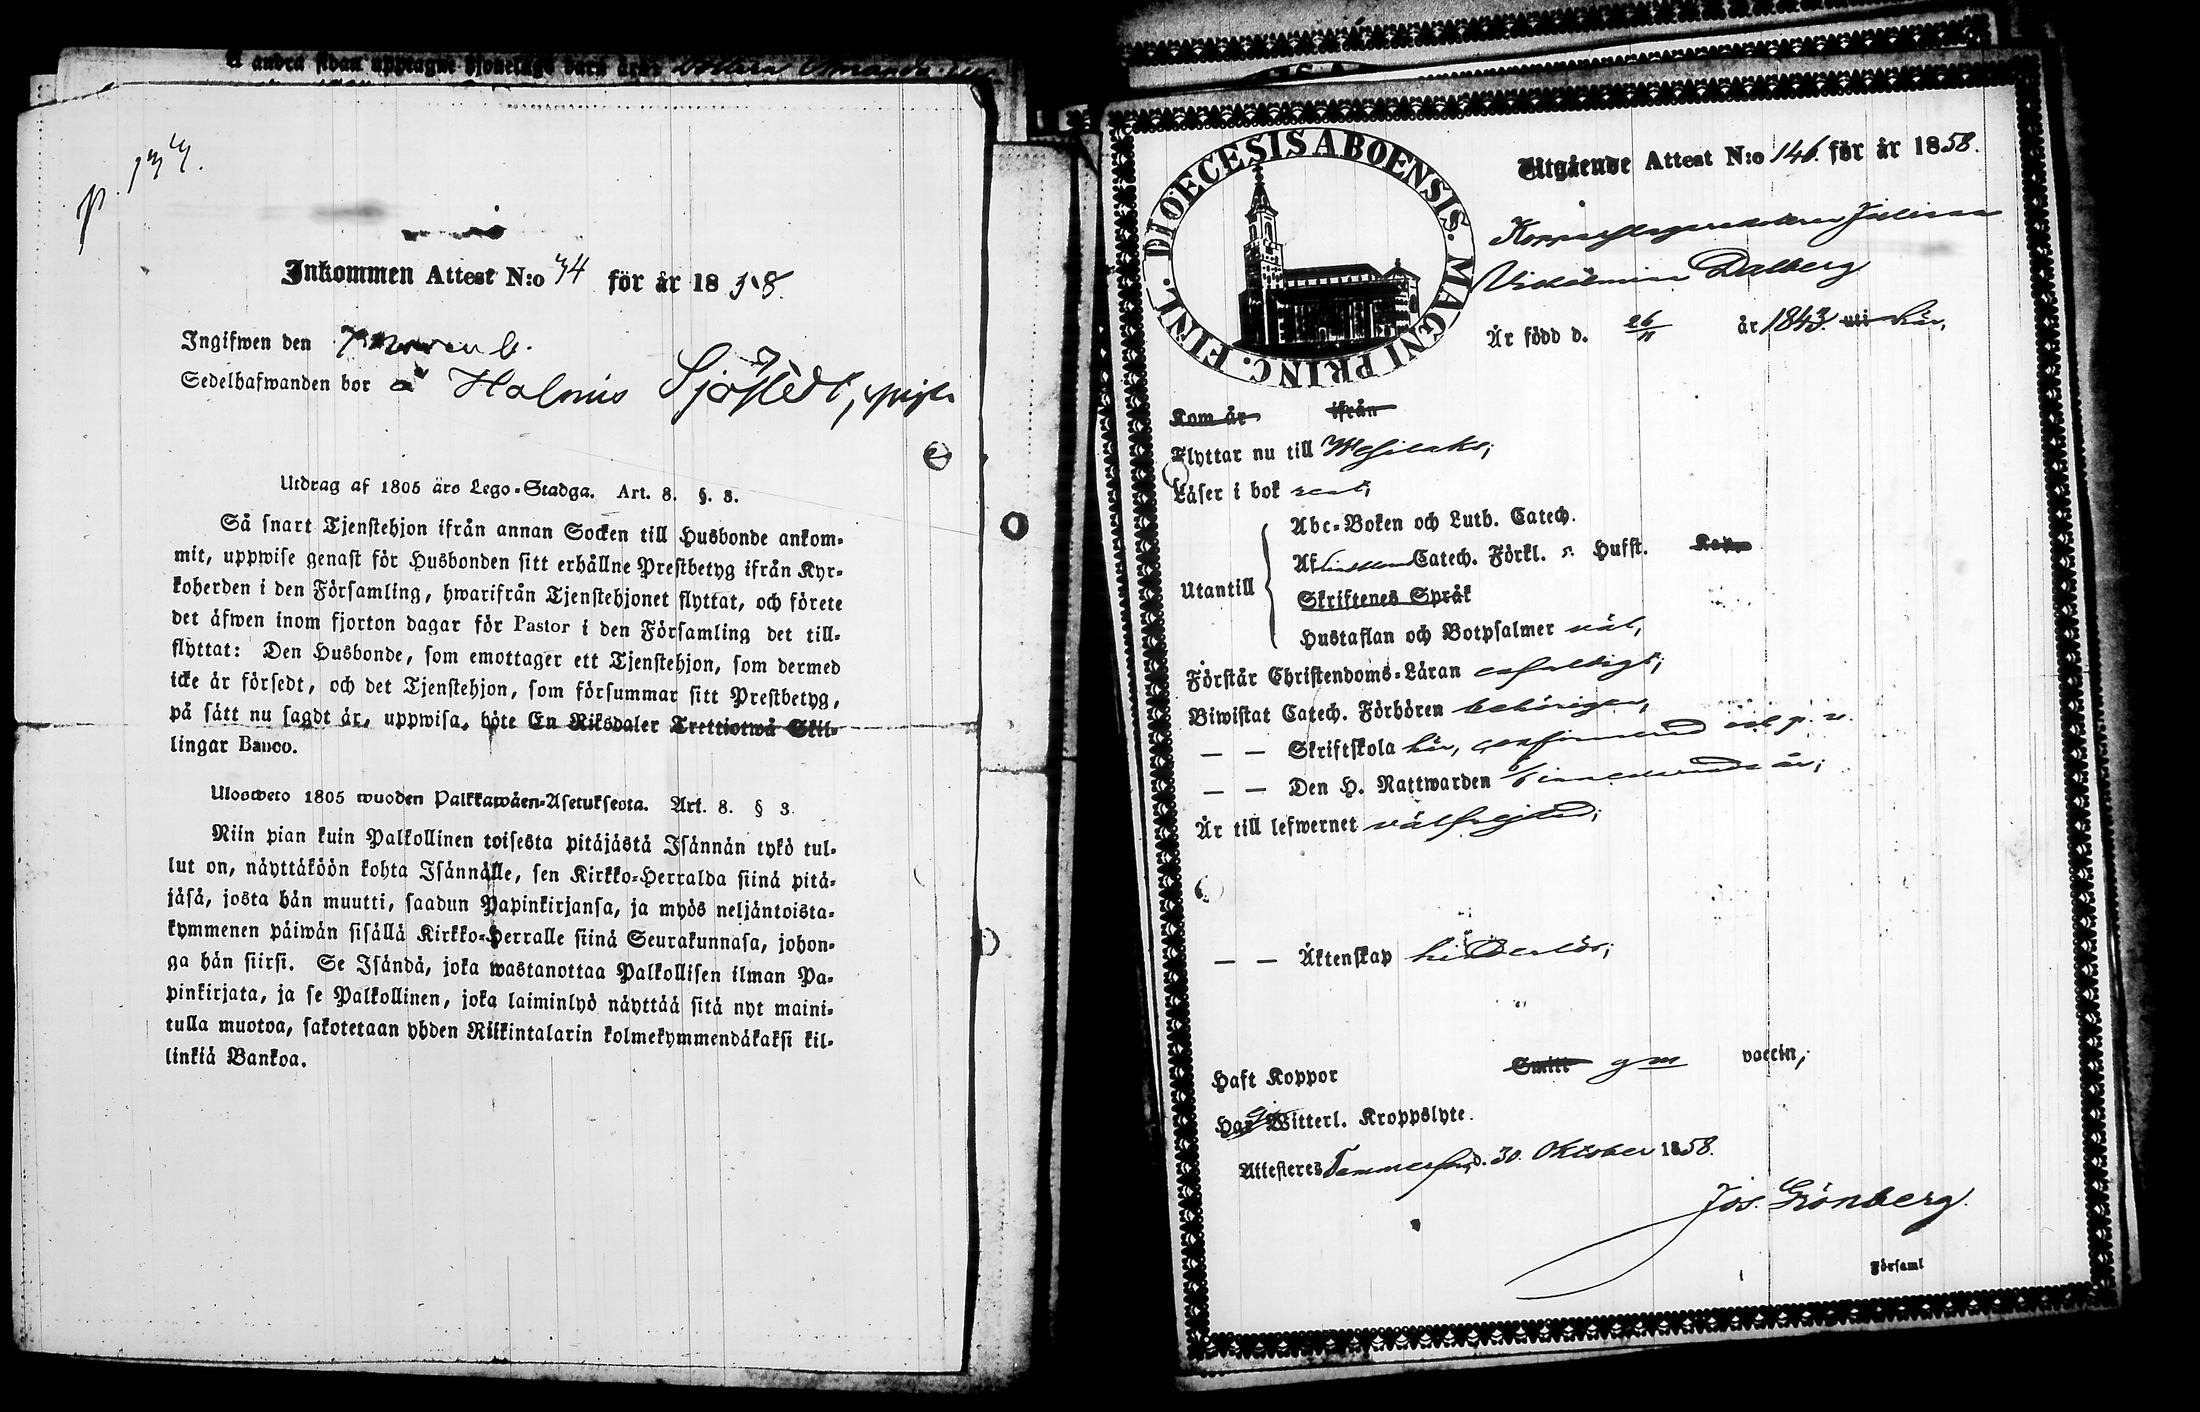 å andra sidan upptagne hjonelags barn äro: Dottren Amanda
p. 
Inkommen Attest N:o 74 för år 1858.
Ingifwen den 7 Novemb.
Sedelhafwanden bor å Halmis Sjöstedt, piga
Utdrag af 1805 års Lego-Stadga. Art. 8. §. 3.
Så snart Tjenstehjon ifrån annan Socken till Husbonde ankom-
mit, uppwise genast för Husbonden sitt erhållne Prestbetyg ifrån Kyr-
koherden i den Församling, hwarifrån Tjenstehjonet flyttat, och förete
det äfwen inom fjorton dagar för Pastor i den Församling det till-
flyttat: Den Husbonde, som emottager ett Tjenstehjon, som dermed
icke är försedt, och det Tjenstehjon, som försummar sitt Prestbetyg,
på sätt nu sagdt är, uppwisa, böte En Riksdaler Trettiotwå Skil-
lingar Banco.
Ulosweto 1805 wuoden Palkkawäen-Asetuksesta. Art. 8. § 3.
Niin pian kuin Palkollinen toisesta pitäjästä Isännän tykö tul-
lut on, näyttäköön kohta Isännälle, sen Kirkko-Herralda siinä pitä-
jäsä, josta hän muutti, saadun Papinkirjansa, ja myös neljäntoista-
kymmenen päiwän sisällä Kirkko-Herralle siinä Seurakunnasa, johon-
ga hän siirsi. Se Isändä, joka wastanottaa Palkollisen ilman Pa-
pinkirjata, ja se Palkollinen, joka laiminlyö näyttää sitä nyt maini-
tulla muotoa, sakotetaan yhden Riikintalarin kolmekymmendäkaksi kil-
linkiä Bankoa.
DIOECESIS ABOENSIS. MAGNI PRINC. FINL.
Utgående Attest N:o 146. för år 1858.
Kopparslagaredottren Juliana
Vilhelmina Dalberg
Är född d. 26/11 år 1843. uti här,
Kom år ifrån
Flyttar nu till Wesilaks;
Läser i bok rent;
Utantill
Abc-Boken och Luth. Catech.
Af Catech. Förkl. o. Husst. Kap.
Skriftenes Språk
Hustaflan och Botpsalmer väl,
Förstår Christendoms-Läran enfaldigt;
Biwistat Catech. Förhören behörigen,
— — Skriftskola här, confirmerad
— — Den H. Nattwarden innewarande år;
Är till lefwernet välfrejdad;
— — Äktenskap hinderlös;
Haft Koppor Smitt gm vaccin,
Har Ej Witterl. Kroppslyte.
Attesteres Tammerfors, d. 30. Oktober 1858.
Jos. Grönberg.
Församl